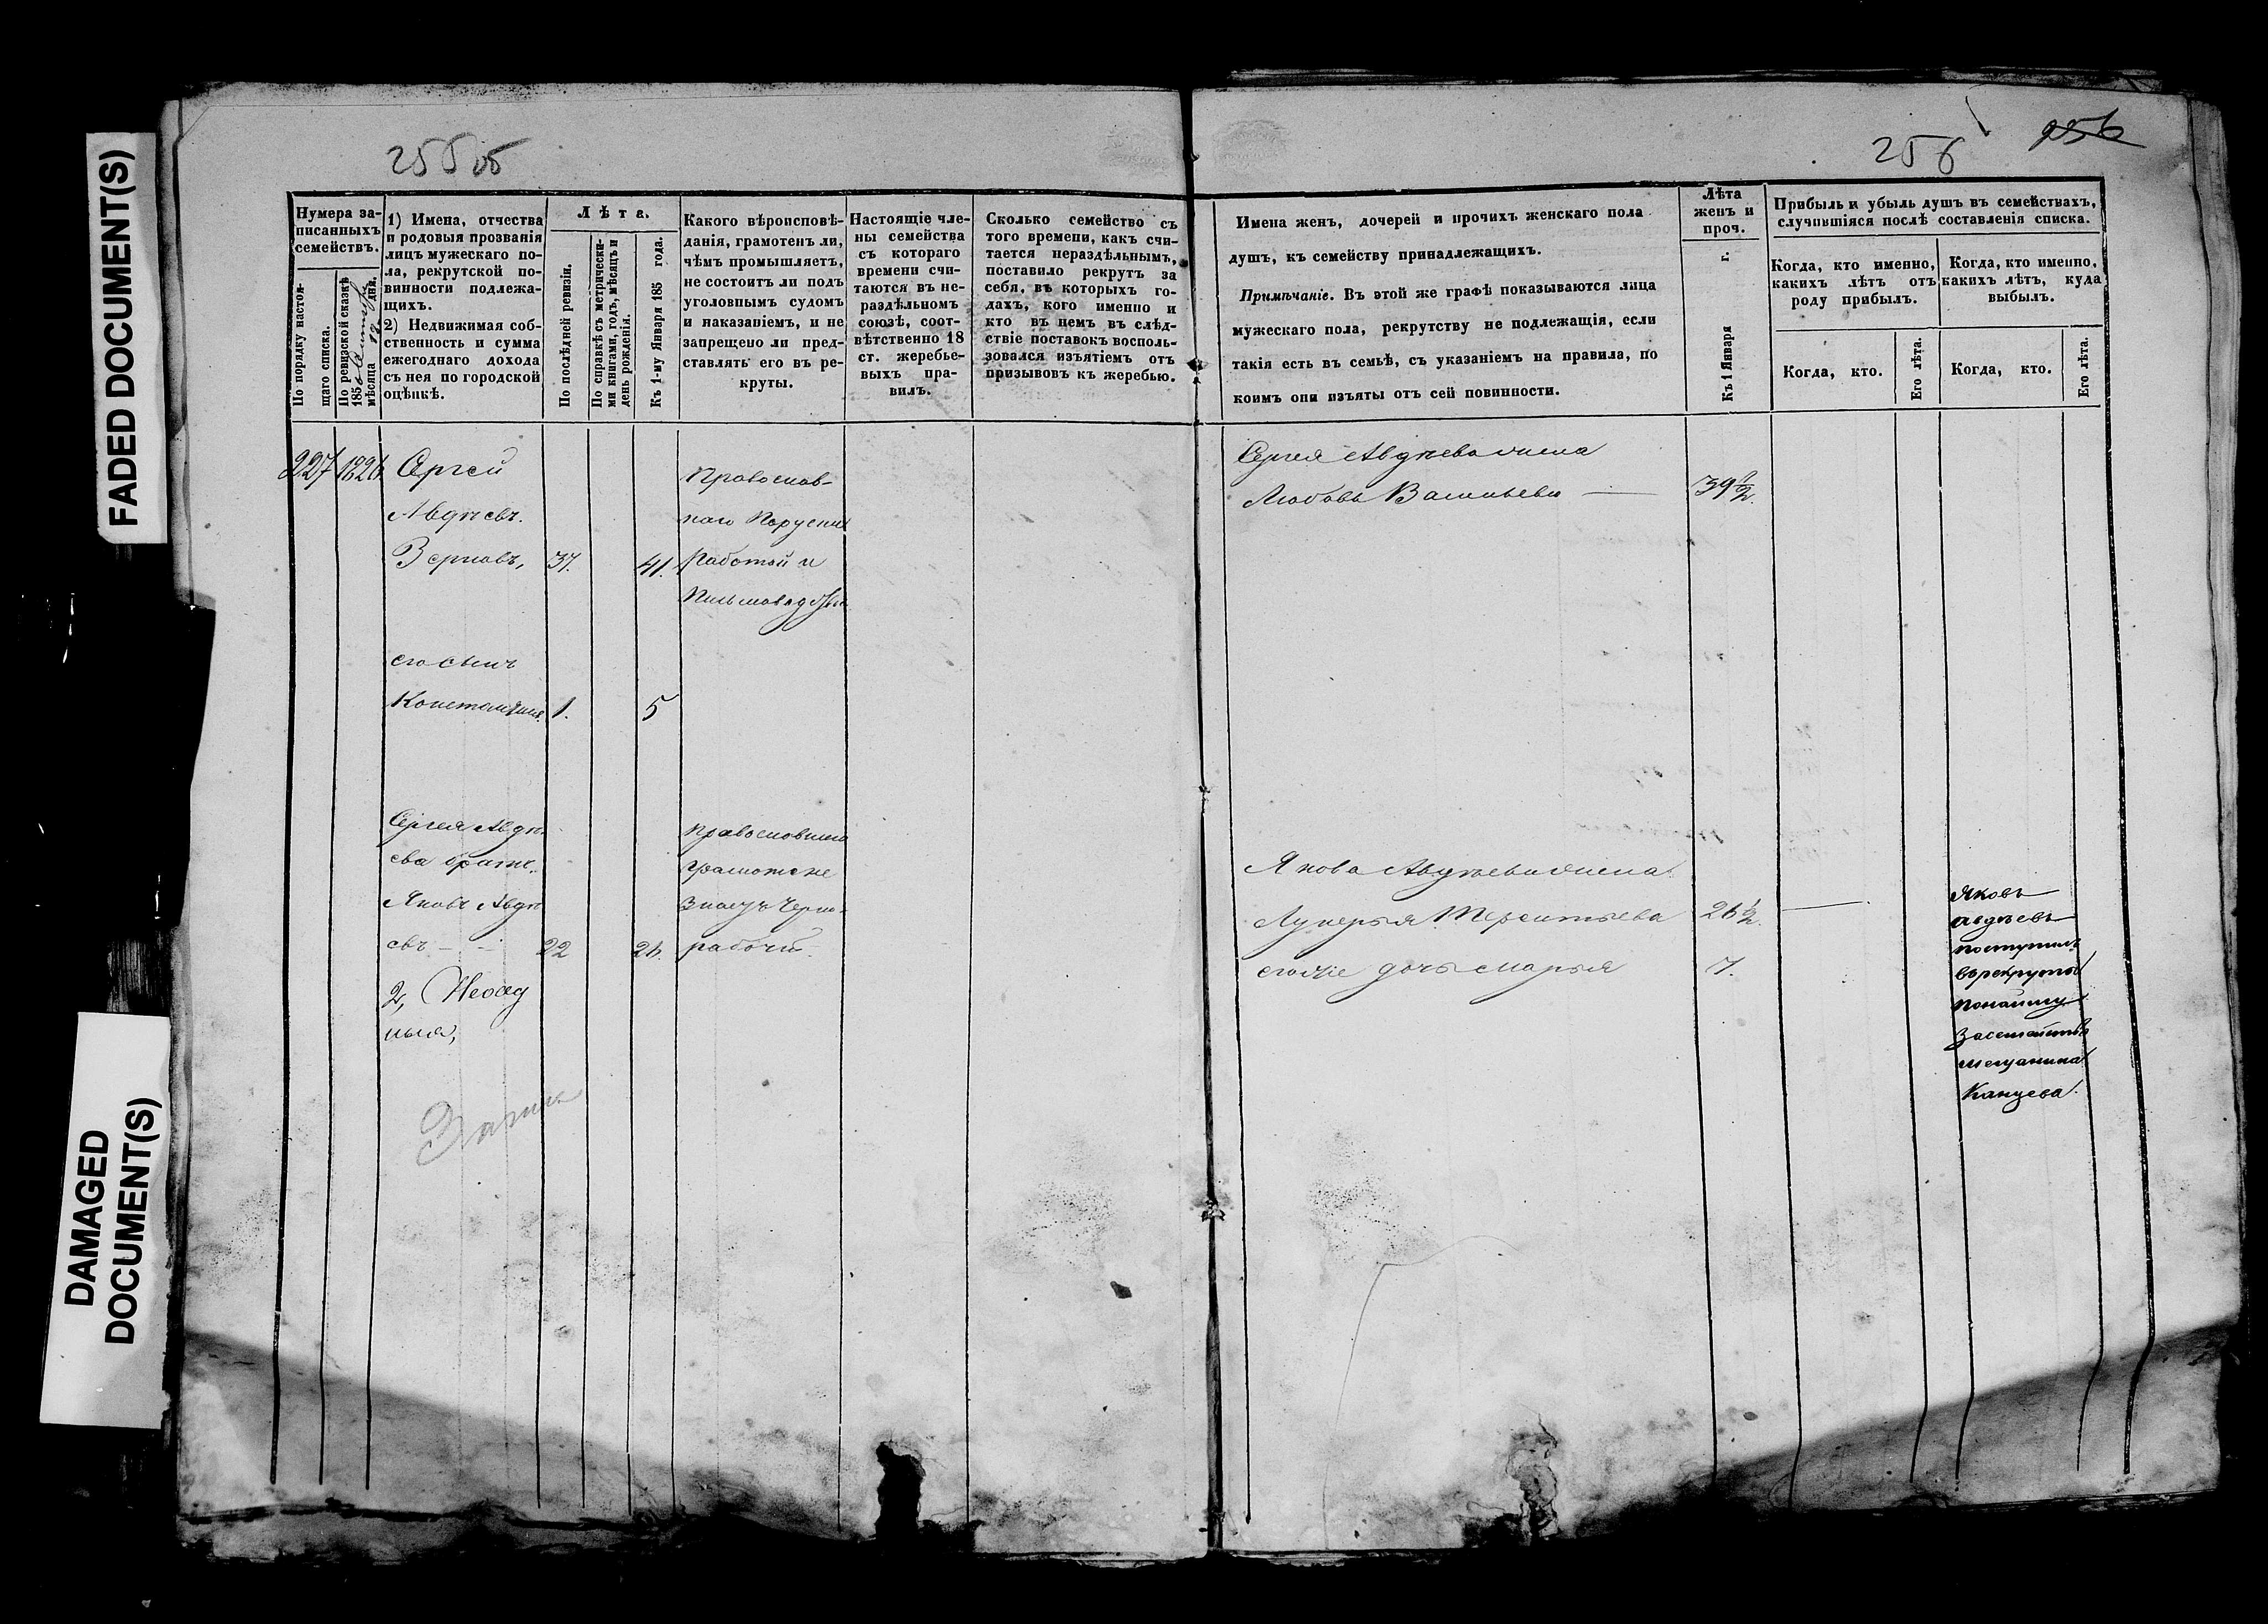 FADED DOCUMENT(S)
DAMAGED
DOCUMENT(S)
255 об
Нумера за-
писанныхъ
семействъ.
По порядку настоя-
щаго списка.
По ревизской сказкѣ
185
мѣсяца 12 дня.
1) Имена, отчества
и родовыя прозванія
лицъ мужескаго по-
ла, рекрутской по-
винности подлежа-
щихъ.
2) Недвижимая соб-
ственность и сумма
ежегоднаго дохода
съ нея по городской
оцѣнкѣ.
Лѣта.
По послѣдней ревизіи.
По справкѣ съ метрически-
ми книгами, годъ, мѣсяцъ и
день рожденія.
Къ 1-му Января 185 года.
Какого вѣроисповѣ-
данія, грамотенъ ли,
чѣмъ промышляетъ,
не состоитъ ли подъ
уголовнымъ судомъ
и наказаніемъ, и не
запрещено ли пред-
ставлять его въ ре-
круты.
Настоящіе чле-
ны семейства
съ котораго
времени счи-
таются въ не-
раздѣльномъ
союзѣ, соот-
вѣтственно 18
ст. жеребье-
выхъ пра-
вилъ.
Сколько семейство съ
того времени, какъ счи-
тается нераздѣльнымъ,
поставило рекрутъ за
себя, въ которыхъ го-
дахъ, кого именно и
кто въ немъ въ слѣд-
ствіе поставокъ восполь-
зовался изъятіемъ отъ
призывовъ къ жеребью.
227 1826 Сергей
Авдѣевъ
Зерновъ, 37. 41.
Православ-
наго
работой и
его сынъ
Константинъ 1. 5
Сергея Авдѣ
ева братъ
Яковъ Авдѣ
евъ 22 26.
Православнаго
грамоте не
знаетъ Черно-
рабочій
2,
256
256
Имена женъ, дочерей и прочихъ женскаго пола
душъ, къ семейству принадлежащихъ.
Примѣчаніе. Въ этой же графѣ показываются лица
мужескаго пола, рекрутству не подлежащія, если
такія есть въ семьѣ, съ указаніемъ на правила, по
коимъ они изъяты отъ сей повинности.
Лѣта
женъ и
проч.
Къ 1 Января г.
Прибыль и убыль душъ въ семействахъ,
случившіяся послѣ составленія списка.
Когда, кто именно,
какихъ лѣтъ отъ
роду прибылъ.
Когда, кто именно,
какихъ лѣтъ, куда
выбылъ.
Когда, кто.
Его лѣта.
Когда, кто.
Его лѣта.
Сергея Авдѣева жена
Любовь Васильева 39 1/2.
Якова Авдѣева жена
Лукерья Терентьева 26 1/2.
дочь Марья 7.
Яковъ
Авдѣевъ
поступилъ
въ рекруты
по найму
за семейство
мещанина
Канцева.